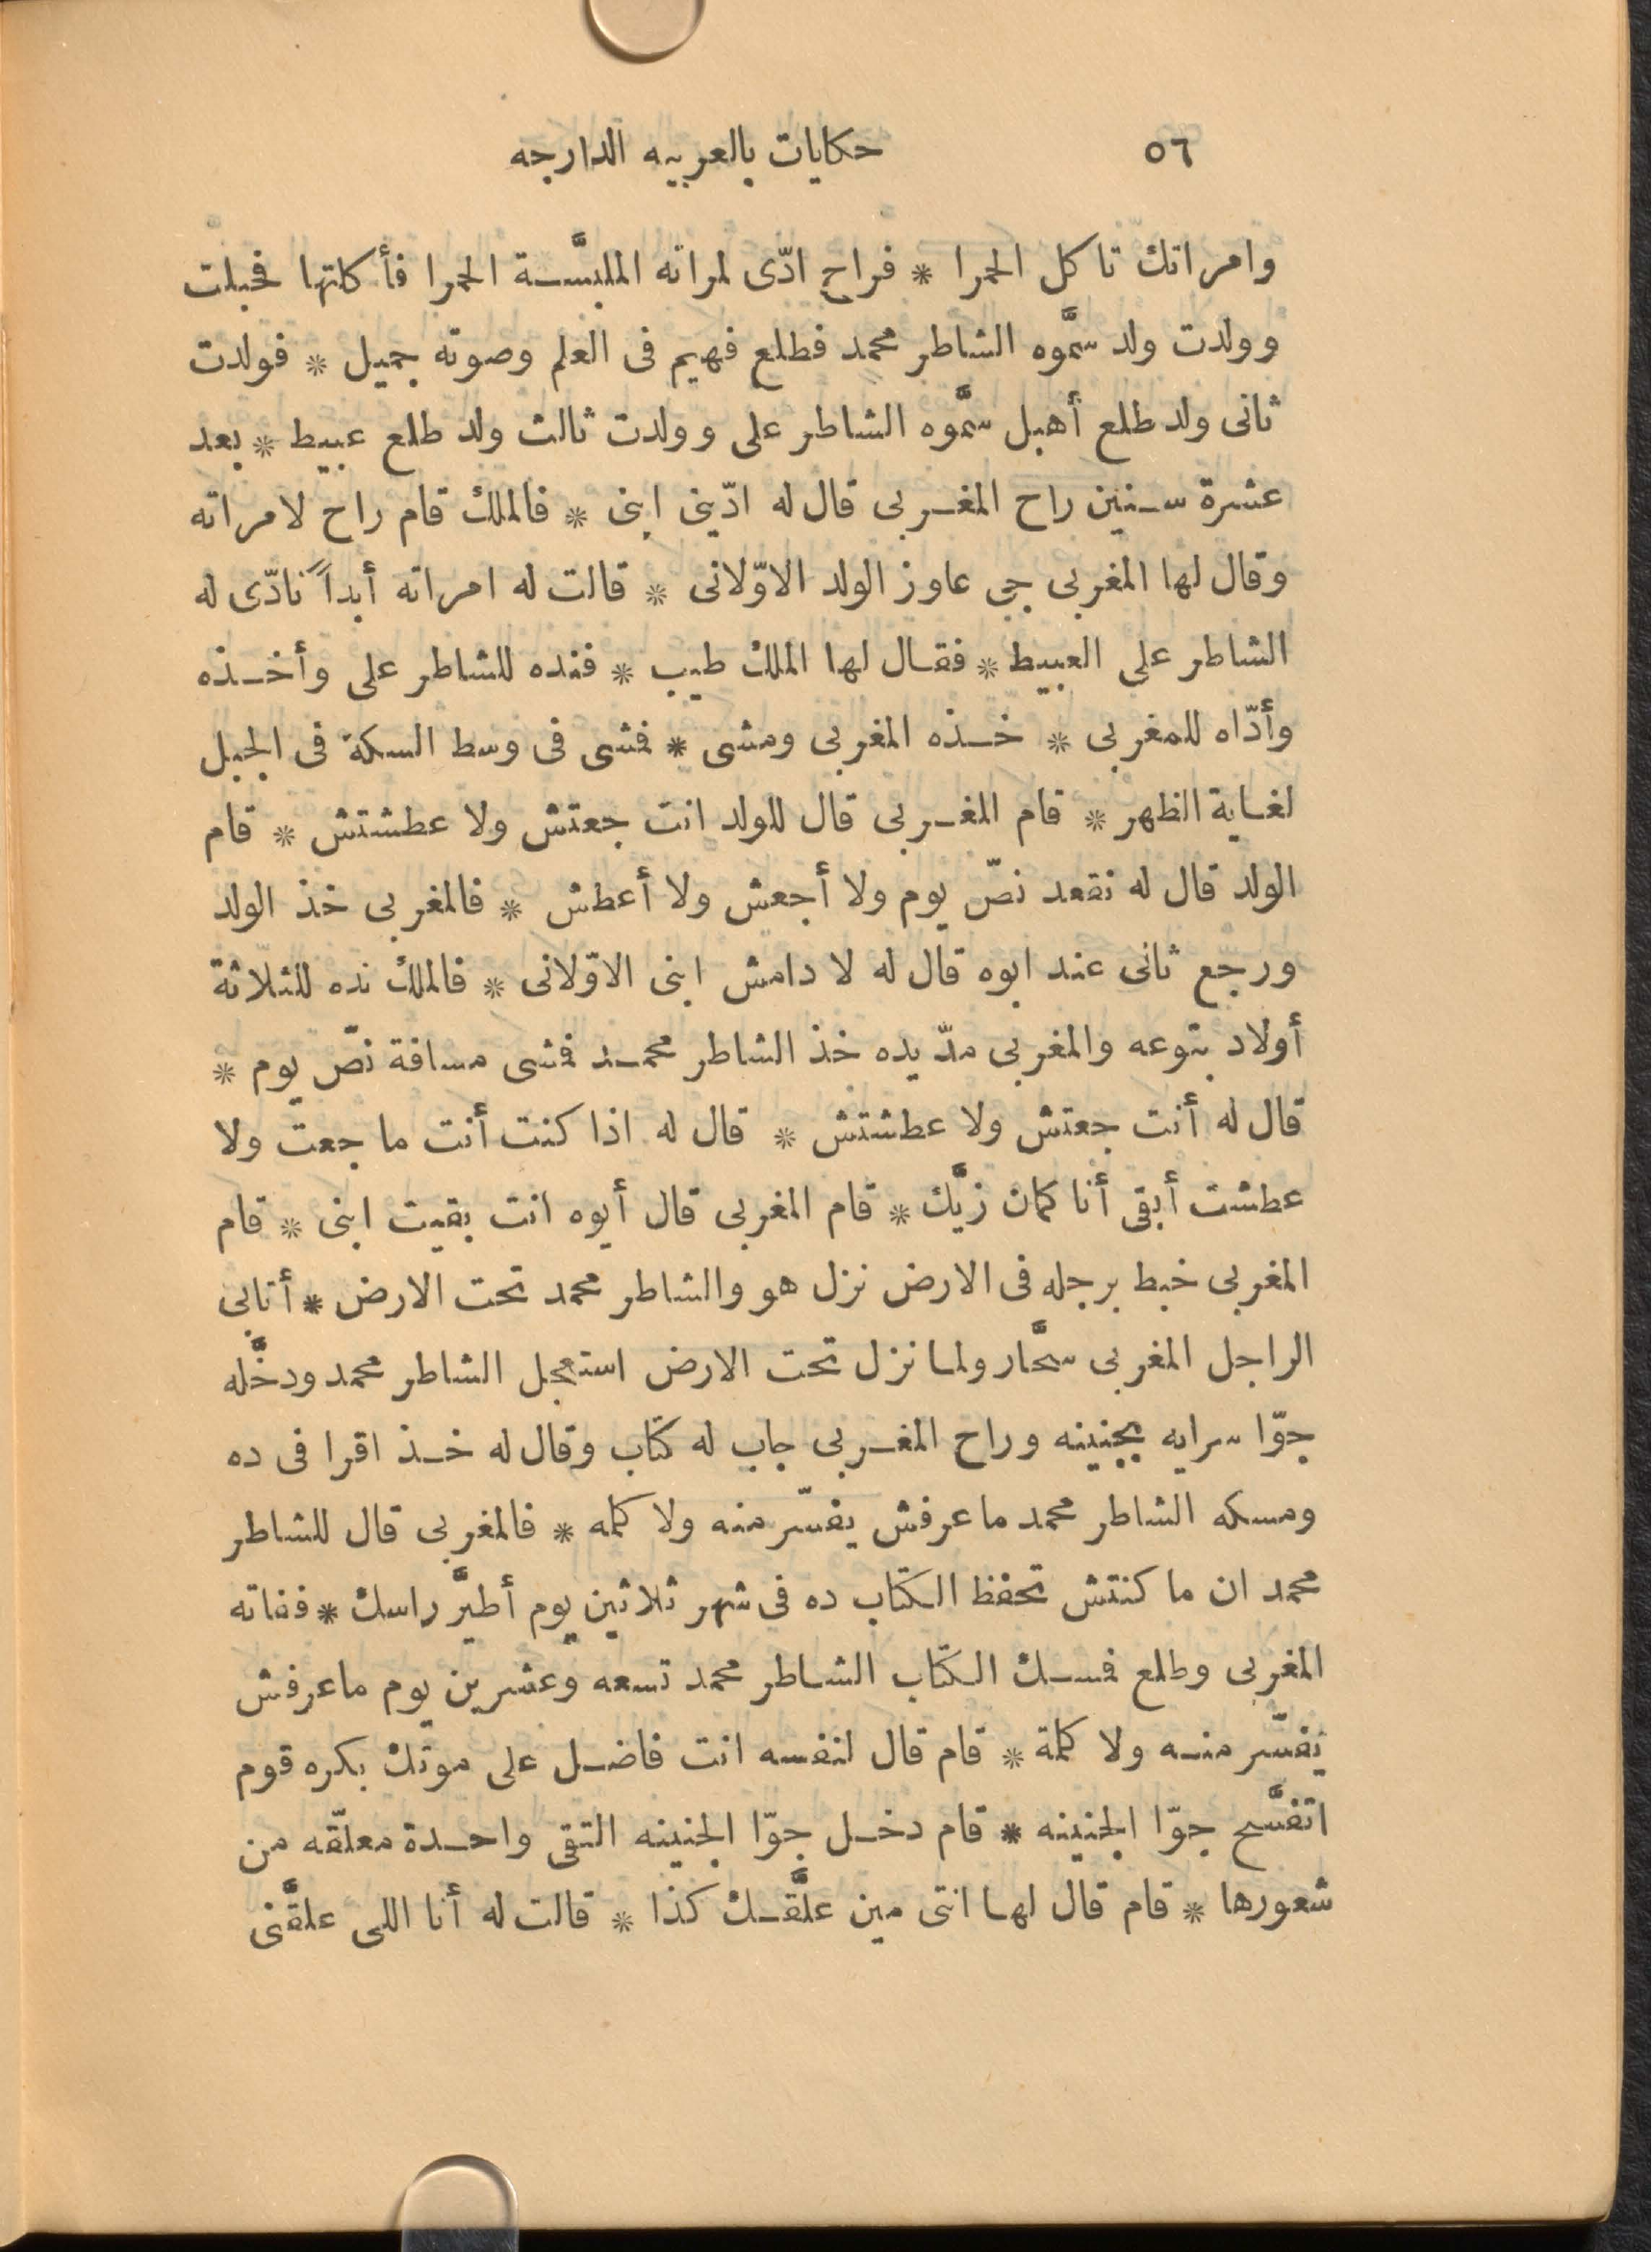 ٥٦ حكايات بالعربيه الدارجه
وامراتك تاكل الحمرا * فراح ادّى لمراته الملبَّسة الحمرا فأكلتها فحبلت
وولدت ولد سمَّوه الشاطر محمد فطلع فهيم فى العلم وصوته جميل * فولدت
ثانى ولد طلع أهبل سمَّوه الشاطر على وولدت ثالث ولد طلع عبيط * بعد
عشرة سنين راح المغربى قال له ادّينى ابنى * فالملك قام راح لامراته
وقال لها المغربى جى عاوز الولد الاوّلانى * قالت له امراته أبداً نادّى له
الشاطر على العبيط * فقال لها الملك طيب * فنده للشاطر على وأخذه
وأدّاه للمغربى * خذه المغربى ومشى * فمشى فى وسط السكة فى الجبل
لغاية الظهر * قام المغربى قال للولد انت جعتش ولا عطشتش * قام
الولد قال له نقعد نصّ يوم ولا أجعش ولا أعطش * فالمغربى خذ الولد
ورجّع ثانى عند ابوه قال له لا دامش ابنى الاوّلانى * فالملك نده للثلاثة
أولاد بتوعه والمغربى مدّ يده خذ الشاطر محمد فمشى مسافة نصّ يوم *
قال له أنت جعتش ولا عطشتش * قال له اذا كنت أنت ما جعت ولا
عطشت أبقى أنا كمان زيَّك * قام المغربى قال أيوه انت بقيت ابنى * قام
المغربى خبط برجله فى الارض نزل هو والشاطر محمد تحت الارض * أتابى
الراجل المغربى سحَّار ولما نزل تحت الارض استعجل الشاطر محمد ودخَّله
جوّا سرايه بجنينه وراح المغربى جاب له كتاب وقال له خذ اقرا فى ده
ومسكه الشاطر محمد ما عرفش يفسّر منه ولا كلمه * فالمغربى قال للشاطر
محمد ان ما كنتش تحفظ الكتاب ده فى شهر ثلاثين يوم أطيَّر راسك * ففاته
المغربى وطلع فمسك الكتاب الشاطر محمد تسعه وعشرين يوم ماعرفش
يفسّر منه ولا كلمة * قام قال لنفسه انت فاضل على موتك بكره قوم
اتفسَّح جوّا الجنينه * قام دخل جوّا الجنينه التقى واحدة معلّقه من
شعورها * قام قال لها انتى مين علَّقك كذا * قالت له أنا اللى علقَّنى